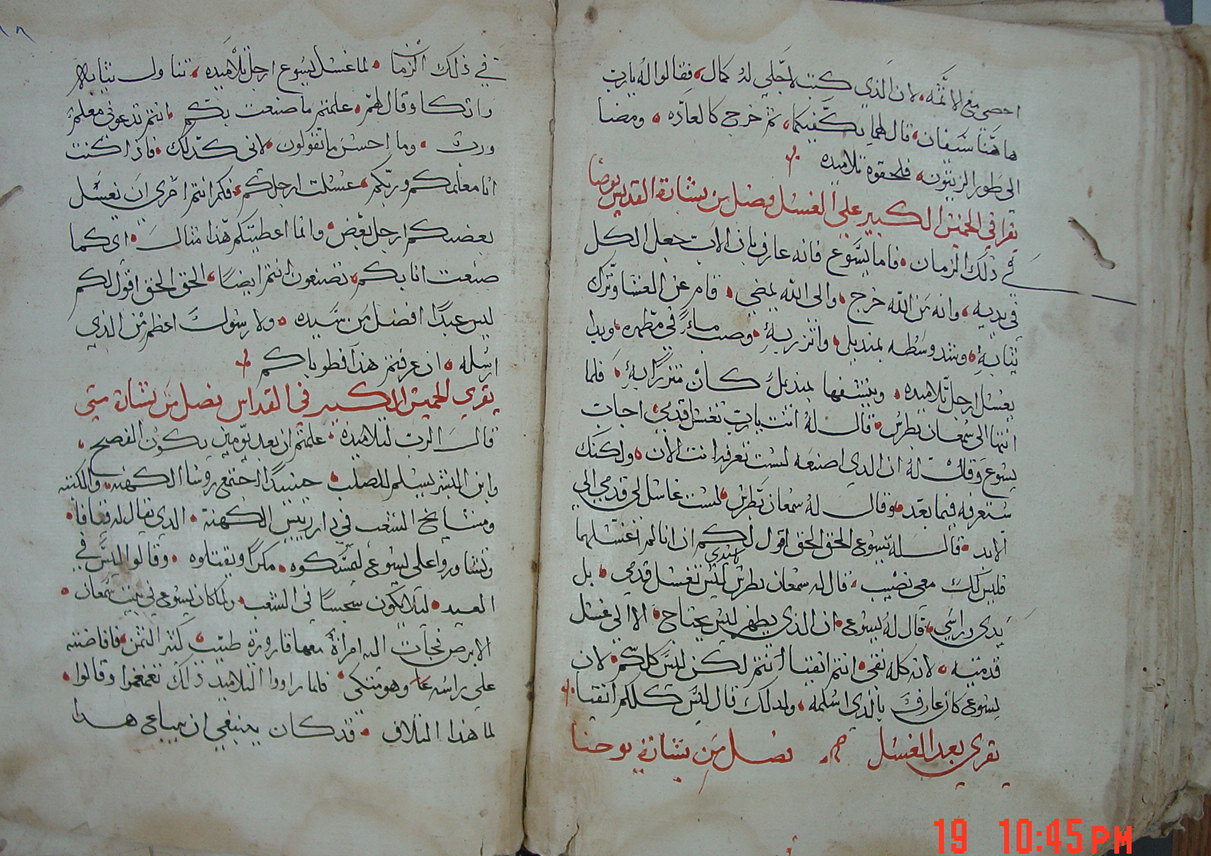 احصي مع الاثمه • لان الذي كتب لاجلي له كمال • فقالوا له يارب
هاهنا سيفان • قال لهما يكفيكما • ثم خرج كالعاده • ومضا
الى طور الزيتون • فلحقوه تلاميده
يقرا في الخميس الكبير على الغسل فصل من بشارة القديس يوحنا
في ذلك الزمان • فاما يسوع فانه عارف بان الاب جعل الكل
في يديه • وانه من الله خرج • والى الله يمضي • قام عن العشا وترك
ثيابه • وشد وسطه بمنديل • واتزر به • وصب ماء في مطهره • وبدا
يغسل ارجل تلاميده • وينشفها بمنديل كان متزرا به • فلما
انتها الى سمعان بطرس • قال له انت يارب تغسل قدمي • اجاب
يسوع وقال له ان الدي اصنعه لست تعرفه انت الان • ولكنك
ستعرفه فيما بعد • وقال له سمعان بطرس • لست غاسل لي قدمي الى
الابد • قال له يسوع الحق الحق اقول لكم ان انا لم اغسلهما
فليس لك معي نصيب • قال له سمعان بطرس ليس تغسل قدمي • بل
يدي وراسي • قال له يسوع • ان الدي يطهر ليس يحتاج • الا الى غسل
قدميه • لانه كله نقي • انتم انقيا انتم لكن ليس كلكم • لان
يسوع كان عارف بالدي اسلمه • ولدلك قال ليس كلكم انقيا
يقرى بعد الغسل فصل من بشارة يوحنا
في ذلك الزمان • لما غسل يسوع ارجل تلاميده • تناول ثيابه
واتكا وقال لهم • علمتم ما صنعت بكم • انتم تدعوني معلم
ورب • وما احسن ما تقولون • لاني كدلك • فاذا كنت
انا معلمكم وربكم • غسلت ارجلكم • فكم انتم احرى ان يغسل
بعضكم ارجل بعض • وانما اعطيتكم هذا مثال • اي كما
صنعت انا بكم • تصنعون انتم ايضا • الحق الحق اقول لكم
ليس عبدا افضل من سيده • ولا رسول اعظم من الذي
ارسله • ان عرفتم هذا فطوباكم
يقرى الخميس الكبير في القداس فصل من بشارة متى
قال الرب لتلاميده • علمتم ان بعد يومين يكون الفصح •
وابن البشر يسلم للصلب • حينيدا اجتمع روسا الكهنه • والكتبه
ومشايخ الشعب في دار رييس الكهنة • الدي يقال له قيافا •
وتشاوروا على يسوع ليمسكوه • مكرا ويقتلوه • وقالوا ليس في
العيد • ليلا يكون سجسا في الشعب • ولما كان يسوع في بيت سمعان •
الابرص فجات اليه امراة معها قارورة طيب • كثير الثمن • فافاضته
على راسه وهو متكي • فلما راوا التلاميد ذلك تغمغموا وقالوا •
لما هدا التلاف • قد كان ينبغي ان يباع هدا
19 10:45 PM